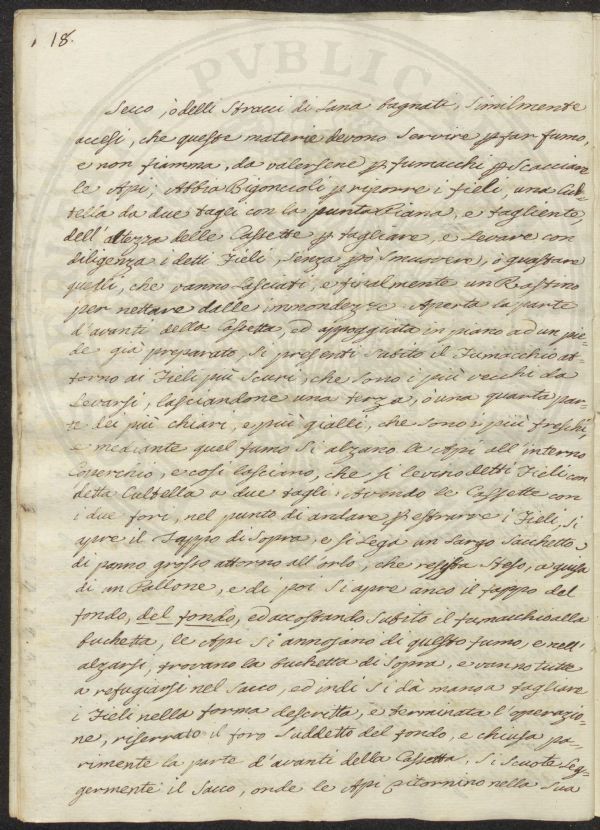 18.
Secco, ò delli Stracci di Lana bagnati, similmente
accesi, che queste materie devono servire p far fumo,
e non fiamma, da valersene p fumacchi p Scacciare
le Api; Abbia Bigoncioli p riporre i fieli, una Cul-
tella da due tagli con la punta Piana, e tagliente,
dell'altezza delle Cassette p tagliare, e Levare con
diligenza i detti Fieli, senza smuovere, ò guastare
quelli, che vanno lasciati, e finalmente un Rastino
per nettare dalle immondezze. Aperta la parte
d'avanti della Cassetta, ed appoggiata in piano ad un pie-
de già preparato, si presenti subito il Fumacchio at-
torno di Fieli più scuri, che sono i più vecchi da
Levarsi, lasciandone una terza, ò una quarta par-
te dei più chiari, e più gialli, che sono i più freschi,
e mediante quel fumo si alzano le Api all'interno
Coperchio, e così lasciano, che si levino detti Fieli con
detta Cultella a due tagli. Avendo le Cassette con
i due fori, nel punto di andare p estrarre i Fieli, si
apre il Tappo di sopra, e si Lega un largo Sacchetto
di panno grosso attorno all'orlo, che resista steso, a guisa
di un Pallone, e di poi si apre anco il tappo dal
fondo, del fondo, ed accostando subito il fumacchio alla
buchetta, le Api si annojano di questo fumo, e nell'
alzarsi, trovano la buchetta di sopra, e vanno tutte
a refugiarsi nel Sacco, ed indi si dà mano a tagliare
i Fieli nella forma descritta, e terminata l'operazio-
ne, riserrato il foro suddetto del fondo, e chiusa pa-
rimente la parte d'avanti della Cassetta, si scuote Leg-
germente il Sacco, onde le Api ritornino nella sua